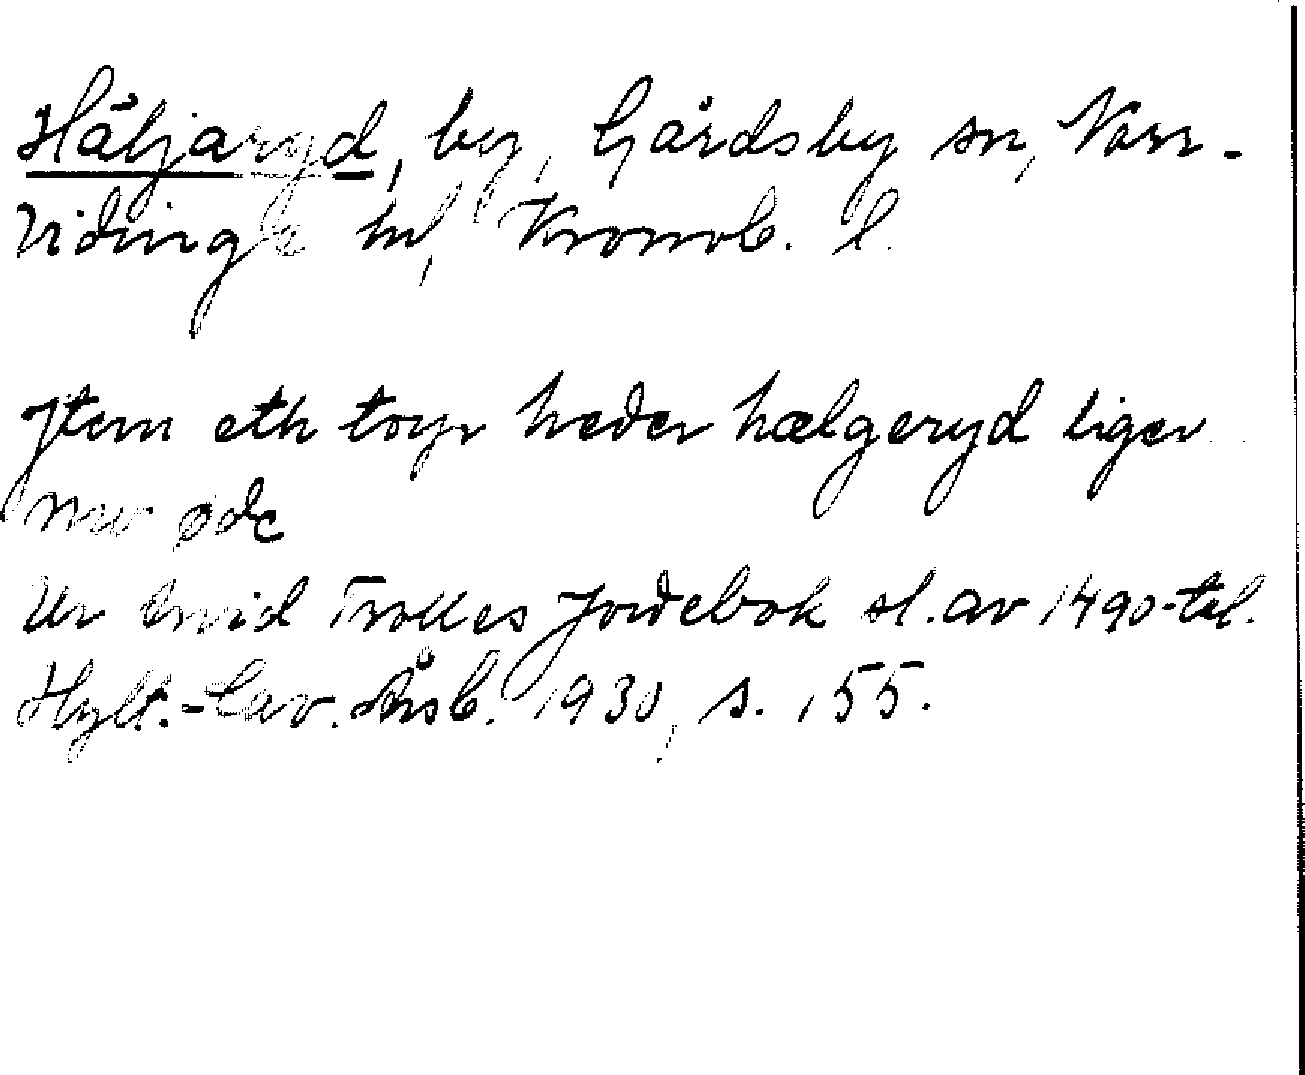 Häljaryd, by, Gårdsby sn, Norr-
vidinge hd, Kronob. l.
Jtem eth torp heder hælgeryd liger
nw øde
Ur Arvid Trolles Jordebok sl. av 1490-tal.
Hylt.-Cav. Årsb. 1930, s. 155.